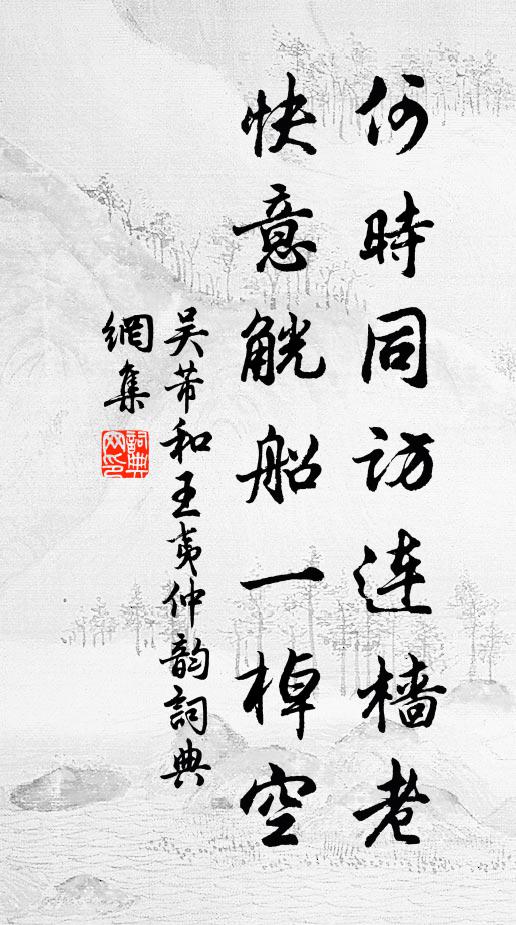 何時同訪连檣老
快意觥船一棹空
吴芾和王夷仲韵詞典
網集
詞典网印